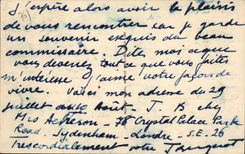 J'espère alors avoir le plaisir
de vous rencontrer car je garde
un souvenir exquis du beau
commissaire. Dites moi ce que
vous devenez tout ce que vous faites
m'intéresse. J'aime votre façon de
vivre. Voici mon adresse du 29
juillet au 10 Août - J. B chez
Miss Acheson - 78 Crystal Palace Park
Road. Sydenham - Londre - S.E. 26
Très cordialement votre